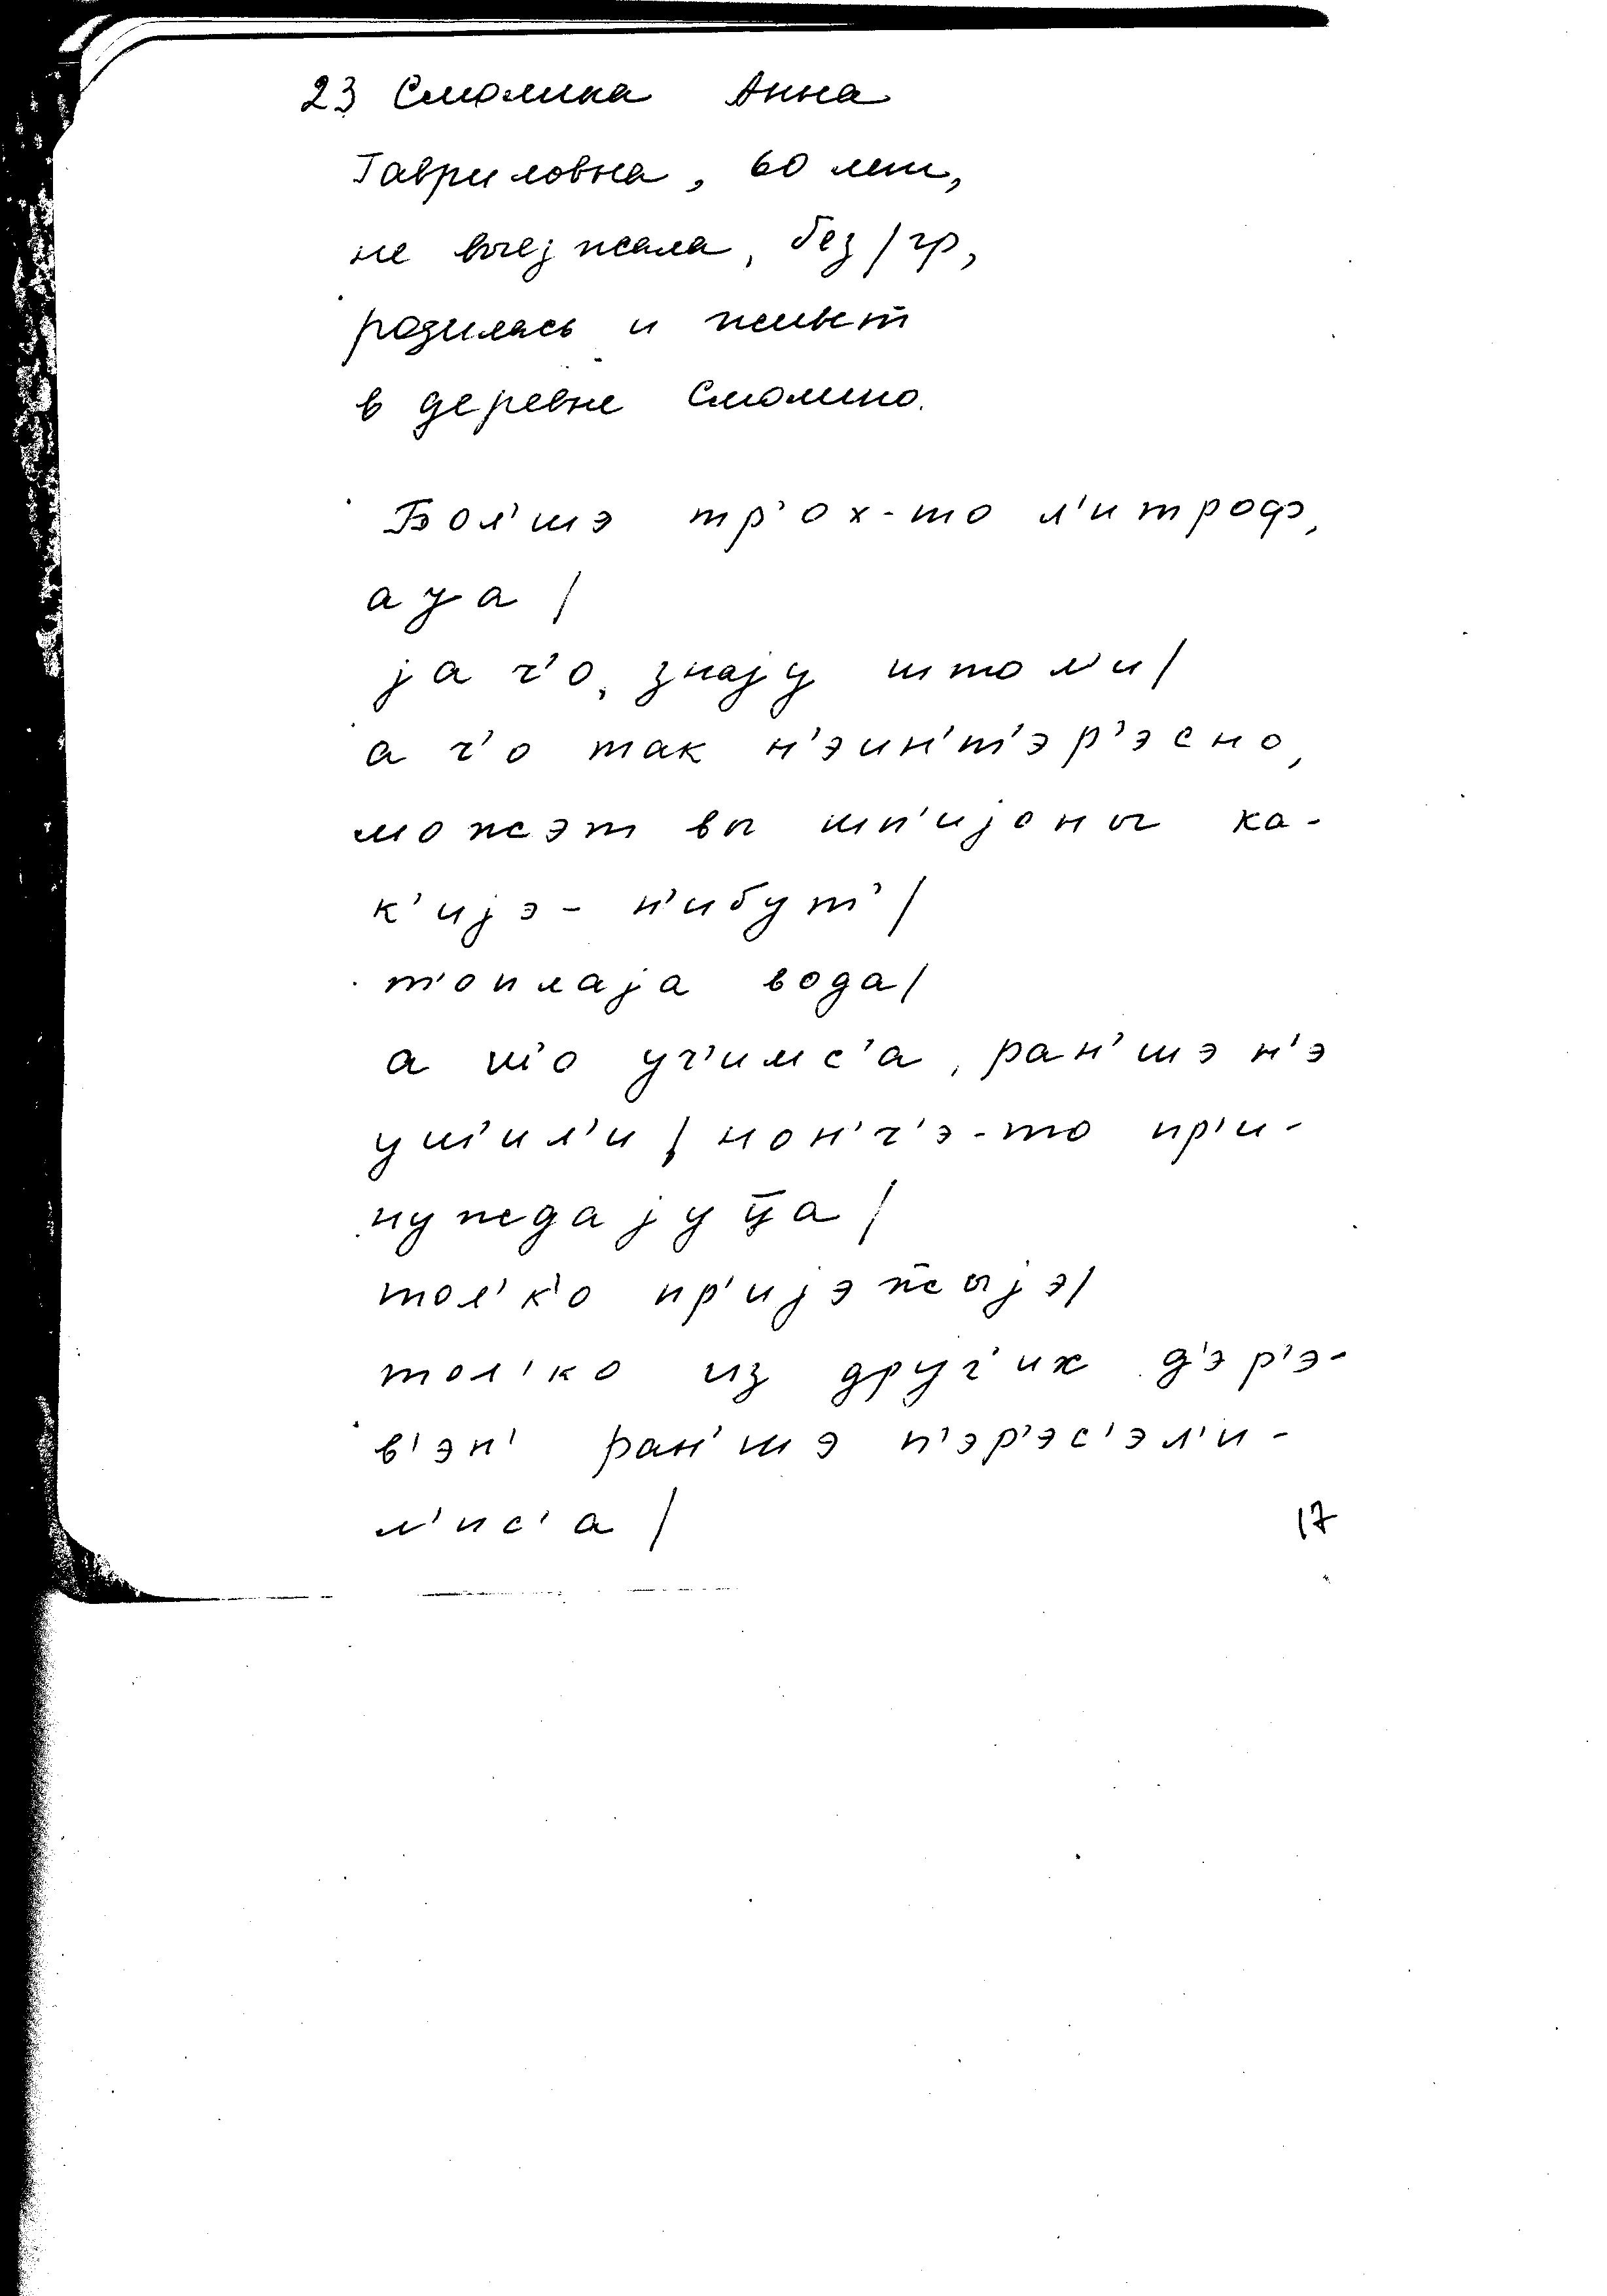 23 Смолина Анна
Гавриловна, 60 лет,
не выезжала, без/гр,
родилась и живет
в деревне Смолино.
Бол'шэ тр'ох-то л'итроф,
ага /
jа ч'о, знаjу што л'и /
а ч'о так н'эин'т'эр'эсно,
можэт вы шп'иjоны ка-
к'иjэ - н'ибут' /
т'оплаjа вода /
а ш'о уч'имс'а, ран'шэ н'э
уш'ил'и / нон'ч'э-то пр'и-
нуждаjуц̅а /
тол'к'о пр'иjэж̅ыjэ /
тол'ко из друг'их д'эр'э-
в'эн' ран'шэ п'эр'эс'эл'и-
л'ис'а /
17